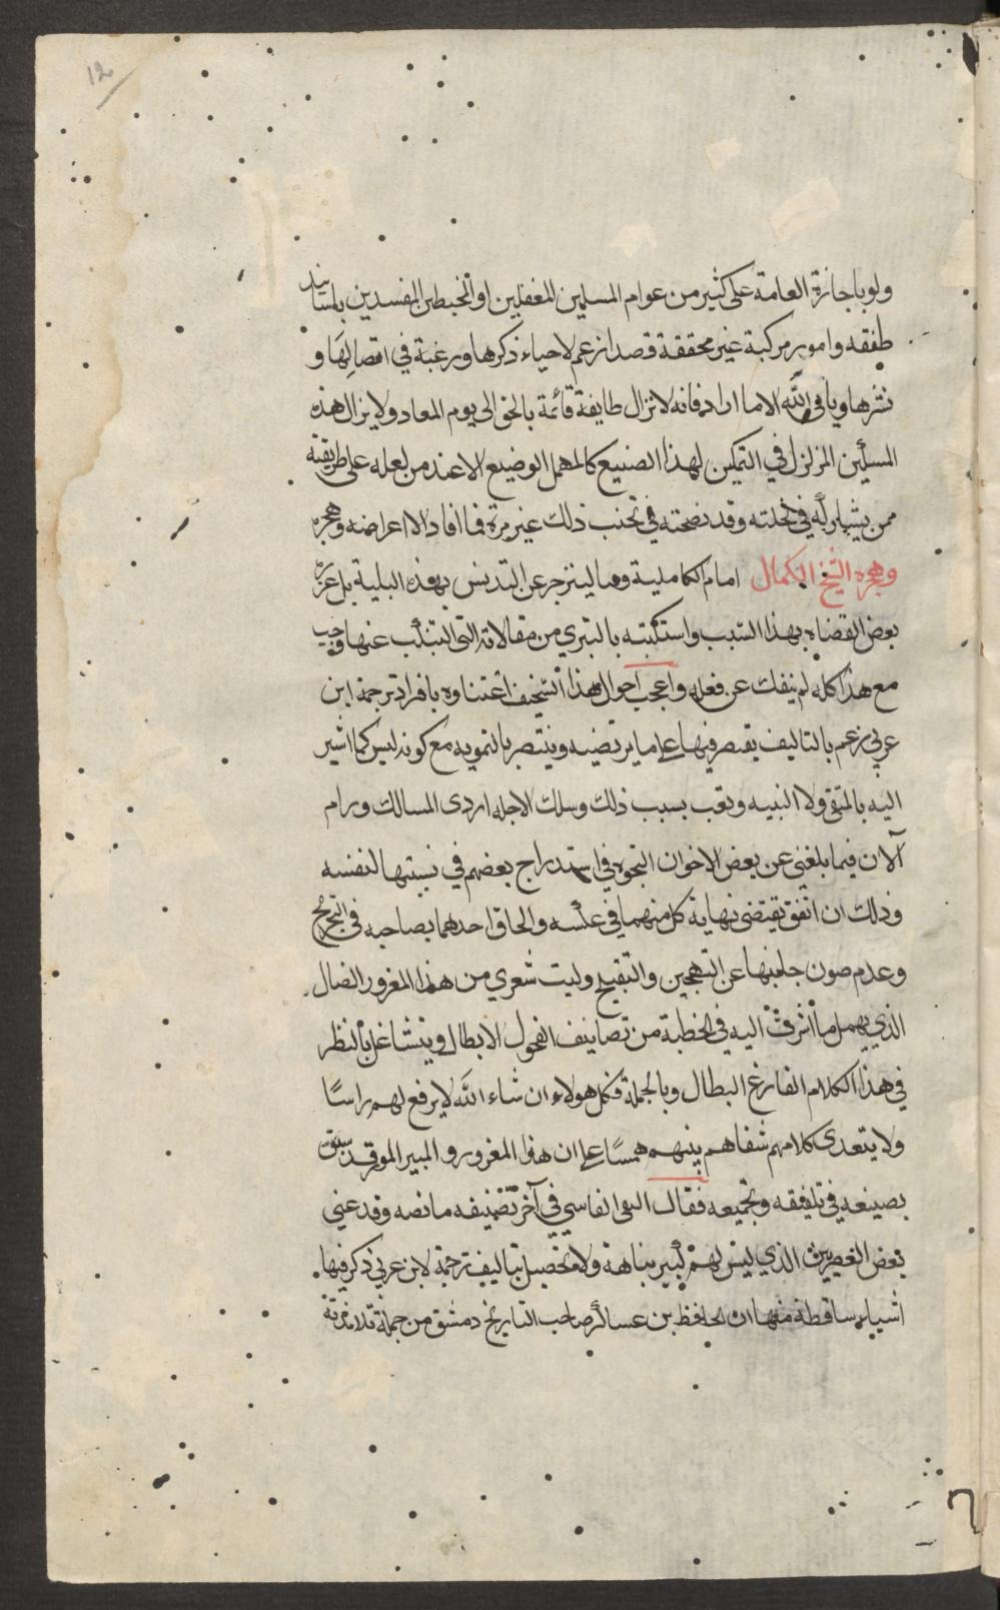 12
ولو باجازة العامة على كثير من عوام المسلمين المغفلين او المخبطين المفسدين باسانيد
طفقه وامور مركبة غير محققة قصدا زعم لاحياء ذكرها ورغبة في اتصالها و
نشرها ويابى الله الا ما اراد فانه لا تزال طايفة قائمة بالحق الى يوم المعاد ولا يزال هذه
المسلين المزلزل في التمكين لهذا الصنيع كالمهمل الوضيع الا عند من لعله على طريقته
ممن يشار له في نحلته وقد نصحته في تجنب ذلك غير مرة فما افاد الا اعراضه وهجره
وهجره الشيخ الكمال امام الكاملية وما لينزجر عن التدنس بهذه البلية بل عزره
بعض القضاه بهذا السبب واستكتبه بالتبري من مقالاته التي التنكب عنها وجب
مع هذا كله لم ينفك عن فعله واعجب احوال هذا السخيف اعتناوه بافراد ترجمة ابن
عربي زعم بالتاليف يقتصر فيها على ما يرتضيه وينتصر بالتمويه مع كونه ليس كما اشير
اليه بالمتقي ولا النبيه وتعب بسبب ذلك وسلك لاجله اردى المسالك ورام
الان فيما بلغني عن بعض الاخوان التجوه في استدراج بعضهم في نسبتها لنفسه
وذلك ان اتفق يقتضي نهاية كل منهما في عكسه والحاق احدهما بصاحبه في التجريح
وعدم صون جانبها عن التهجين والتقبيح وليت شعري من هذا المغرور الضال
الذي يهمل ما اشرفت اليه في الخطبة من تصانيف الفحول الابطال ويتشاغل بالنظر
في هذا الكلام الفارغ البطال وبالجملة فكل هولاء ان شاء الله لا يرفع لهم راسًا
ولا يتعدى كلامهم شفاههم بينهم همسًا على ان هذا المغرور و المبير الموقد سبق
بصنيعه في تلفيقه وتجميعه فقال التقي الفاسي في آخر تصنيفه ما نصه وقد عني
بعض العصريين الذي ليس لهم كبير نباهة ولا تحصيل بتاليف ترجمة لابن عربي ذكر فيها
اشياء ساقطة منها ان الحافظ بن عساكر صاحب التاريخ دمشق من جملة تلامذته